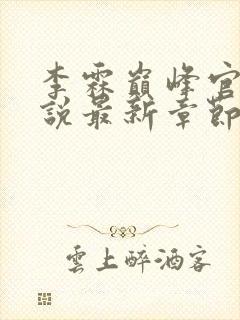 李霖巔峰官
說最新章節
雲上醉酒客